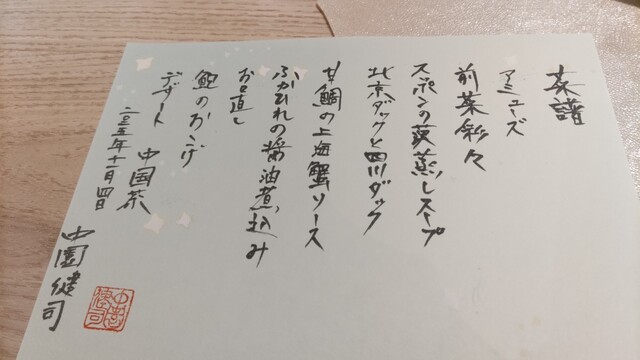 菜譜
アミューズ
前菜彩々
スッポンの茨蒸しスープ
北京ダックと四川ダック
甘鯛の上海蟹ソース
ふかひれの醤油煮込み
お口直し
鮑のおこげ
デザート 中国茶
二〇二五年十一月四日
中園健司